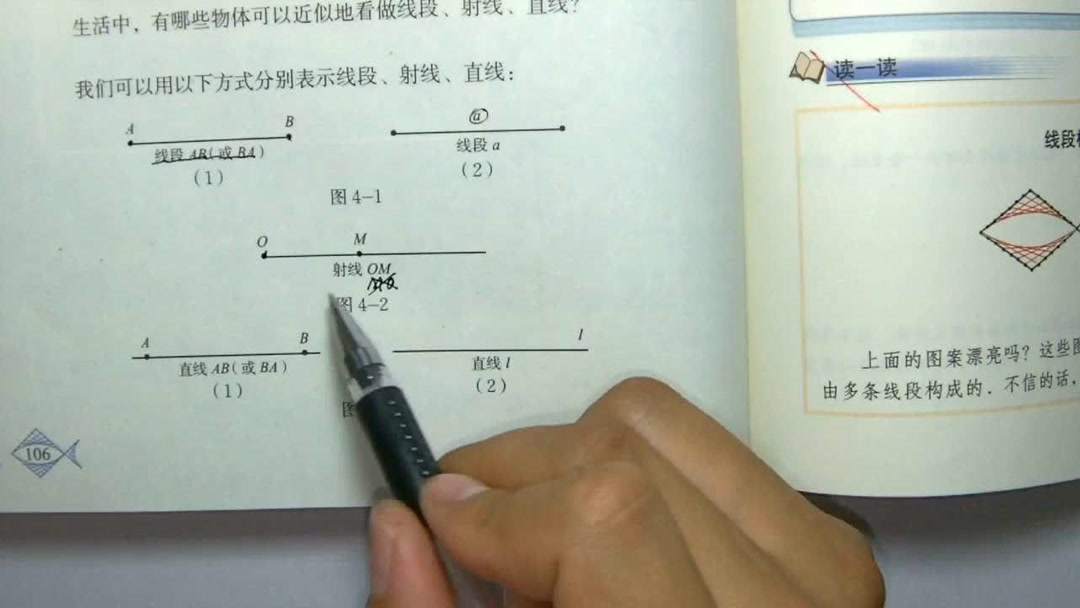 生活中，有哪些物体可以近似地看做线段、射线、直线？
我们可以用以下方式分别表示线段、射线、直线：
A B
线段 AB（或 BA）
（1）
a
线段 a
（2）
图 4–1
O M
射线 OM
图 4–2
A B
直线 AB（或 BA）
（1）
l
直线 l
（2）
图
106
读一读
线段
上面的图案漂亮吗？这些图
由多条线段构成的．不信的话，